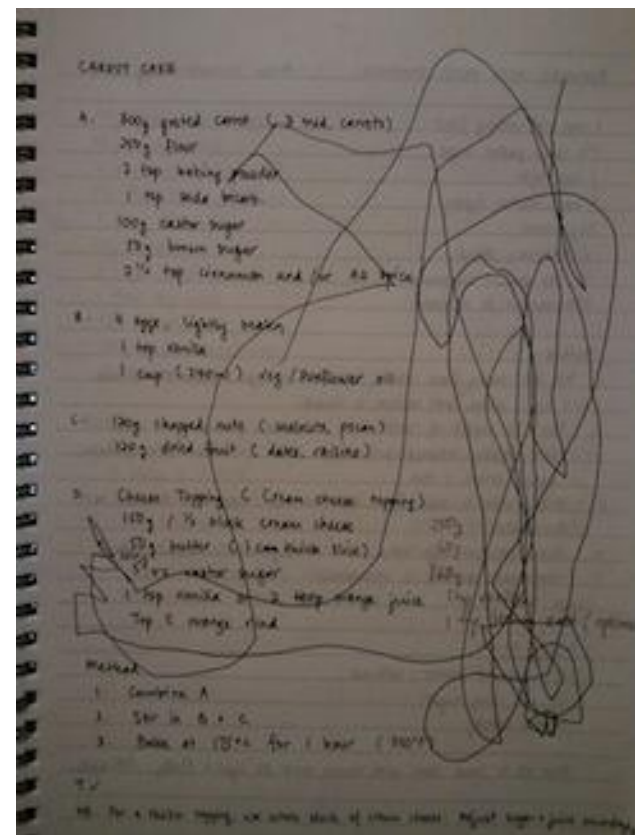 CARROT CAKE
A. 300g grated carrot ( 3 med. carrots)
200g flour
2 tsp baking powder
1 tsp soda bicarb.
100g castor sugar
50g brown sugar
2 ½ tsp cinnamon and/or All spice
B. 4 eggs, lightly beaten
1 tsp vanilla
1 cup (240ml) veg / Sunflower oil
C. 120g chopped nuts ( walnuts, pecan)
120g dried fruit ( dates, raisins)
D. Cheese Topping ( Cream cheese topping)
/ ½ block cream cheese 250g
50g butter ( 1 cm thick slice)
castor sugar
1 tsp vanilla or 2 tbsp orange juice
Top orange rind
Method
1. Combine A
2. Stir in B + C
3. Bake at for 1 hour ( 350°F)
NB. For a thicker topping, use whole block of cream cheese. Adjust sugar + juice accordingly